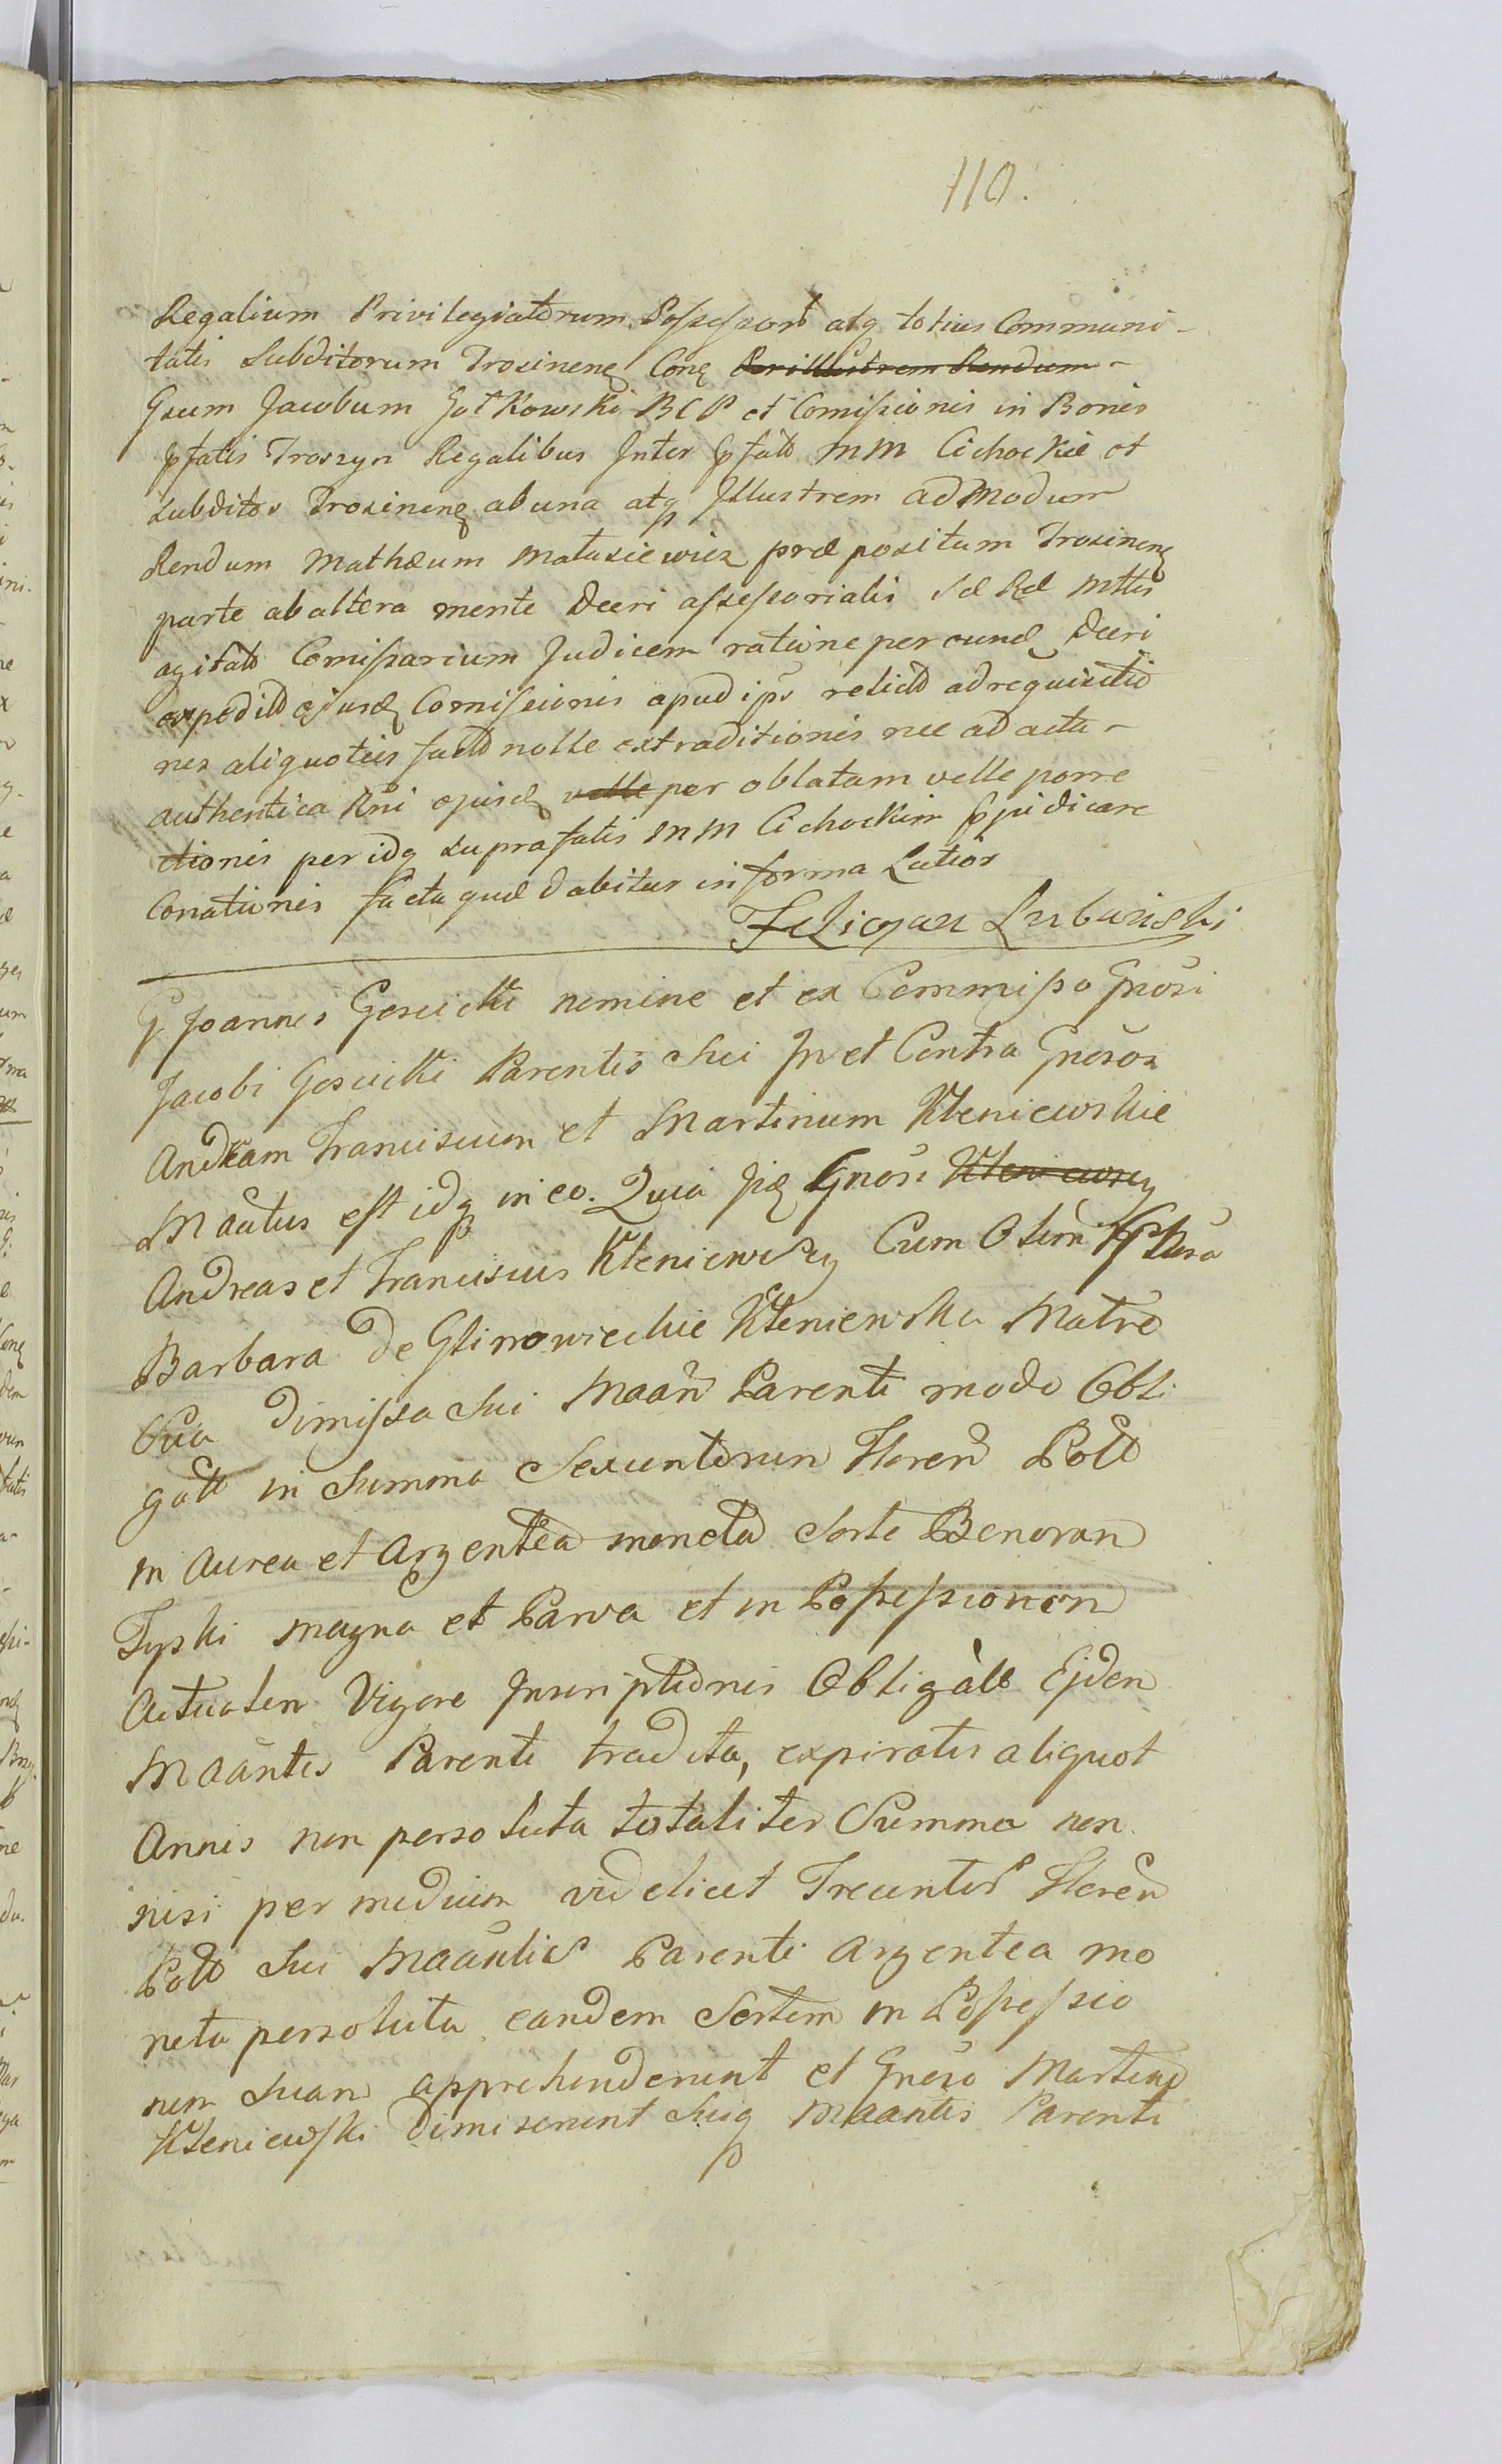 110.
Regalium Privilegiatorum Possessor atq totius Communi-
tatis Subditorum Trosinenę Conę Perillustrem Rendum -
Gsum Jacobum Gotkowski BCP et Comissionis in Bonis
pfatis Troszyn Regalibus Inter pfatt MM Cichockie et
Subditos Trosinenę ab una atq Illustrem admodum
Rendum Mathæum Matusiewicz præpositum Trosinenę
parte ab altera mente Decri assessorialis Sæ Ræ Mttis
agitatt Comissarium Judicem ratione per eund Decri
expeditt ejusd Comissionis apud ips relictt ad requisitio
nes aliquoties factt nolle extraditionis nec ad acta -
authentica Rni ejusd velle per oblatam velle porre
ctionis per idq suprafatis MM Cichockim pjudicare
Conationis facta quæ dabitur in forma Latior
Felicyan Lubański
G Joannes Goscicki nomine et ex Commisso Gnosi
Jacobi Goscicki Parentis Sui In et Contra Gnosos
Andream Franciscum et Martinum Kleniewskie
Maatus est idq in eo. Quia Jid Gnosi Kleniewscy
Andreas et Franciscus Kleniewscy Cum Olim
Barbara de Glinowieckie Kleniewska Matre
Sua Dimissa Sui Maan Parenti modo Obli
gatt in Summa Sexcentorum Floren Poll
in Aurea et Argentea moneta Sorte Bonoran
Tyski magna et Parva et in Possessionem
Actualem Vigore Inscriptionis Obligatt Ejden
Maantis Parenti tradita, expiratis aliquot
Annis non persoluta totaliter Summa non
nisi per medium videlicet Trecentis Floren
Poll Sui Maantis Parenti Argentea mo
neta persoluta eandem Sortem in Possessio
nem Suam apprehenderunt et Gneso Martino
Kleniewski Dimiserunt Suiq Maantis Parenti